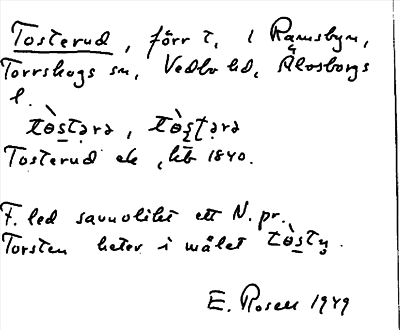 Tosterud, förr t. i Ramsbyn,
Torrskogs sn, Vedbo hd, Älvsborgs
l.
tɵ̀stərə, tɵ̀ʂʈərə
Tosterud ek , kb 1840.
F. led sannolikt ett N. pr.
Torsten heter i målet tɵ̀stn̥.
E. Rosell 1949